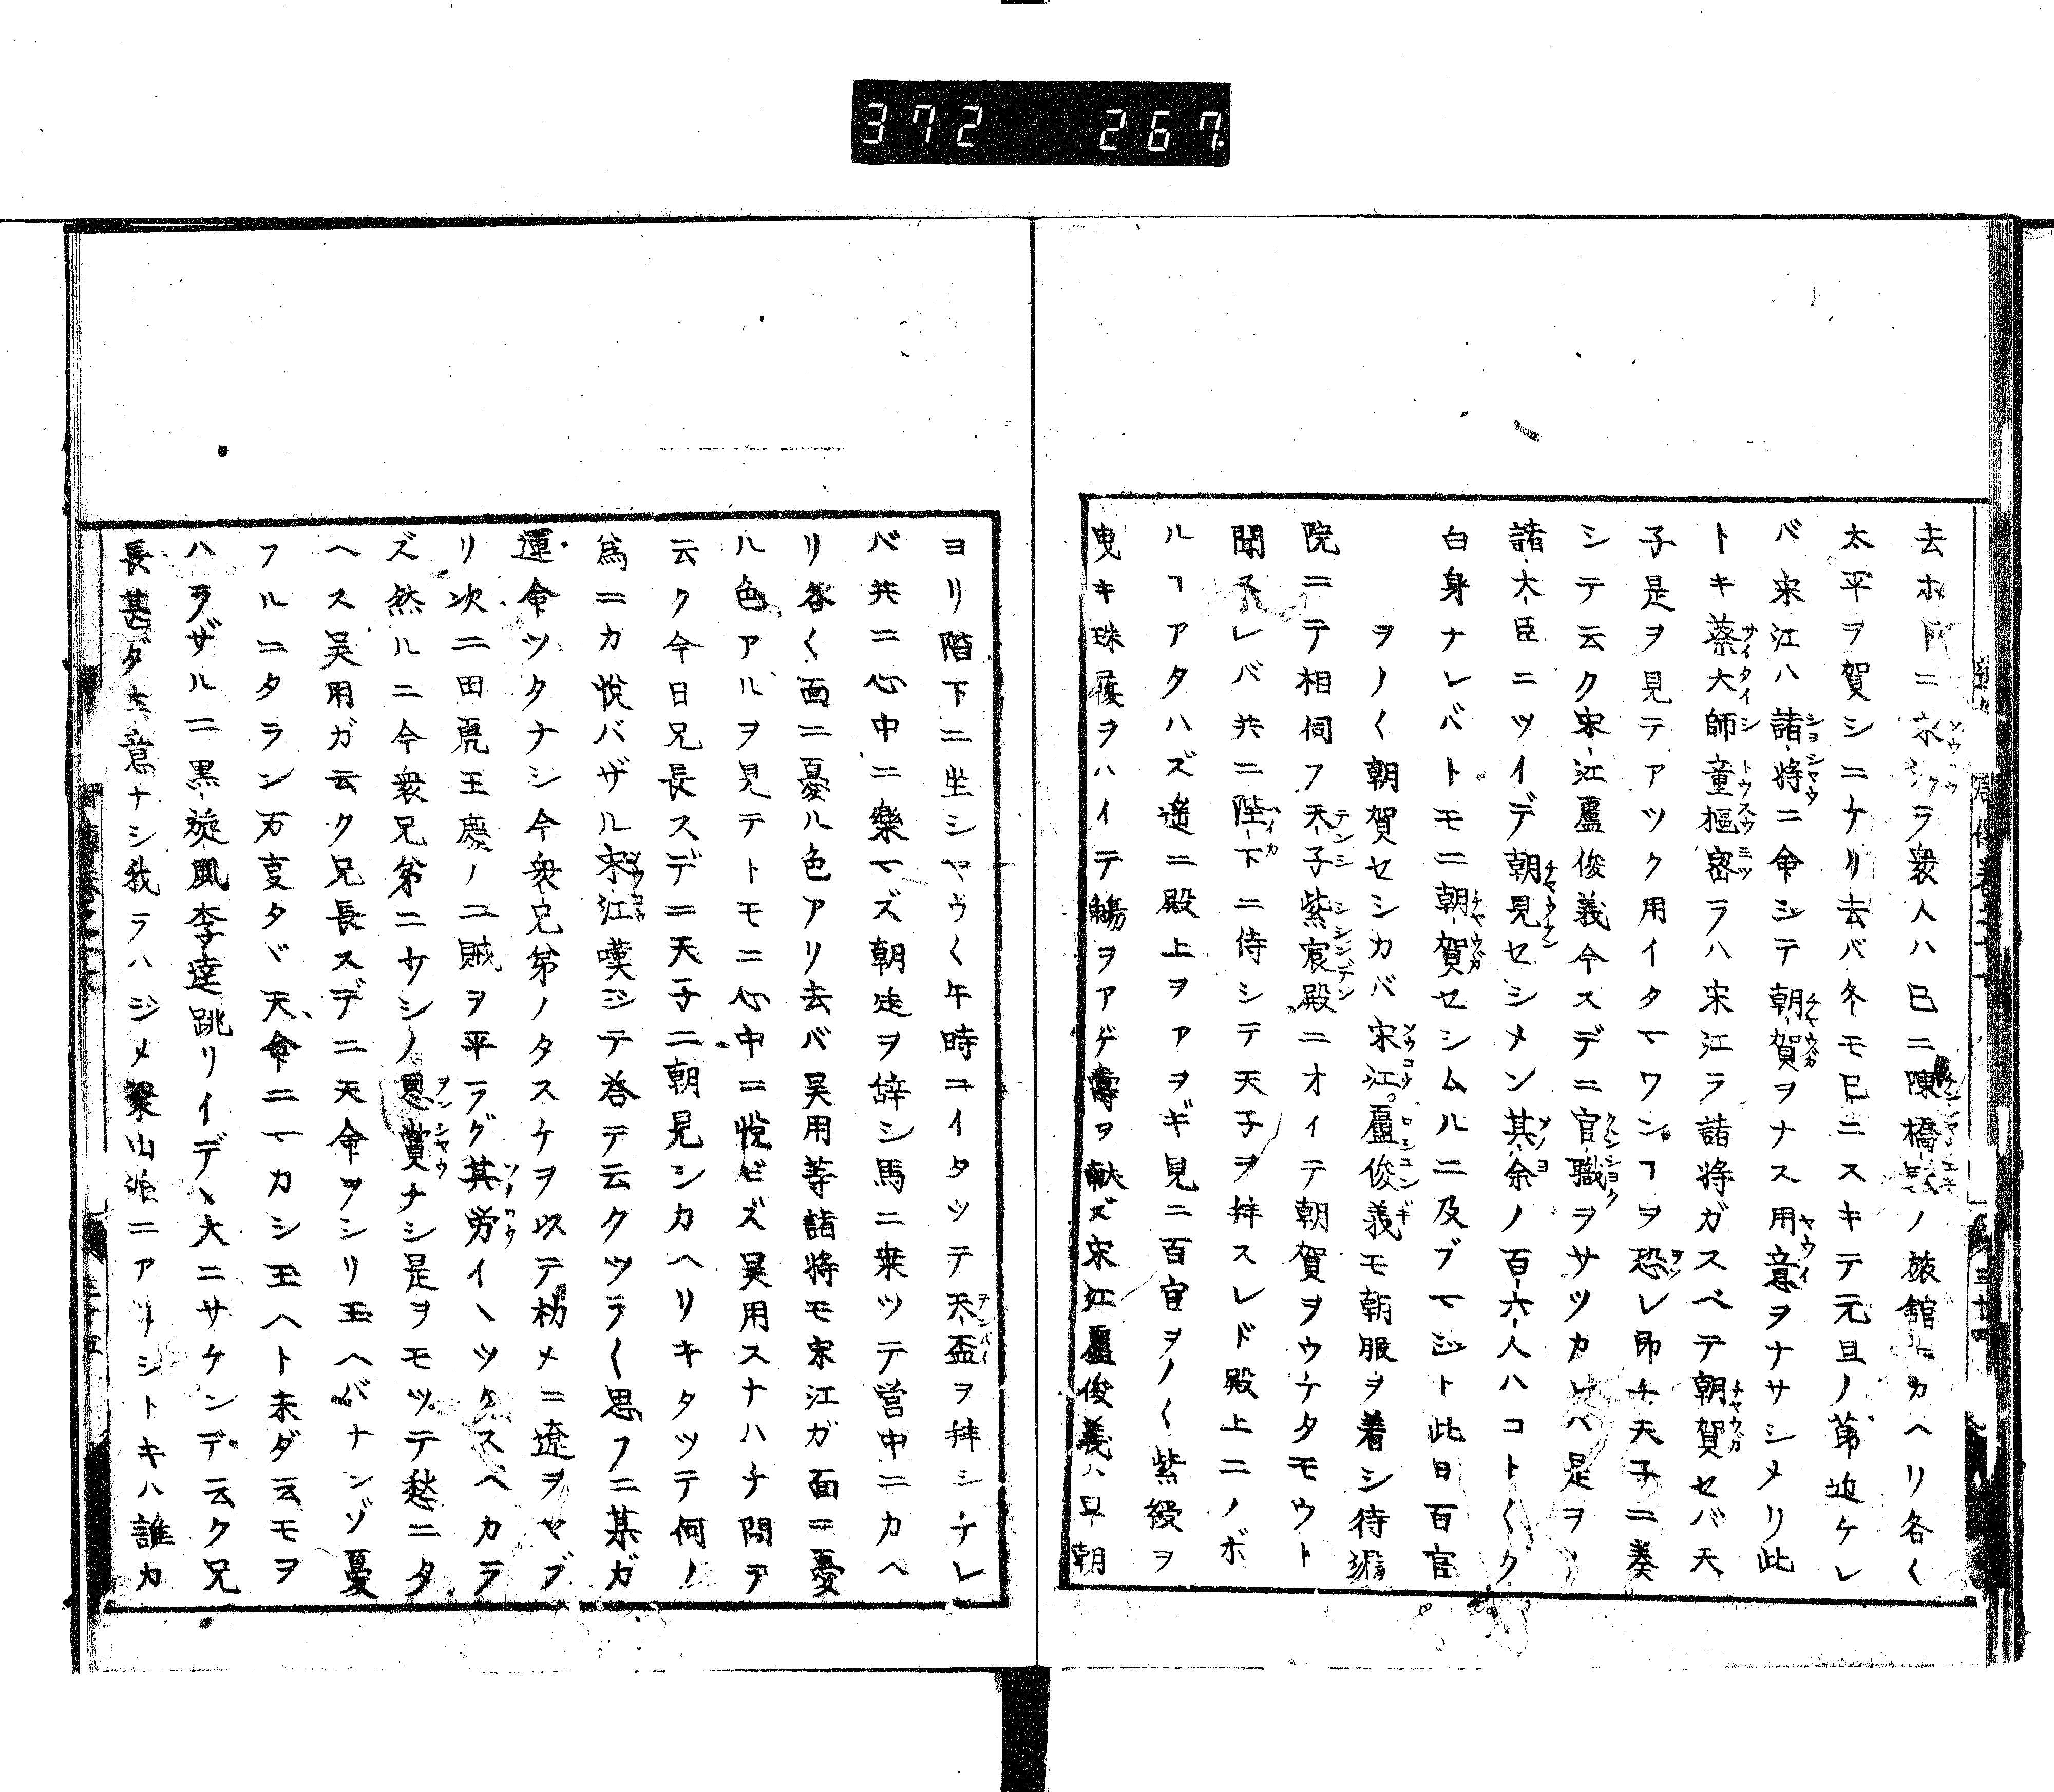 372 267
去ホドニ宋江ラ衆人ハ已ニ陳橋駅ノ旅舘ニカヘリ各〱
太平ヲ賀シニケリ去バ冬モ已ニスキテ元旦ノ苐迫ケレ
バ宋江ハ諸将ニ命ジテ朝賀ヲナス用意ヲナサシメリ此
トキ蔡大師童樞密ラハ宋江ラ諸将ガスベテ朝賀セバ天
子是ヲ見テアツク用イタマワンヿヲ恐レ即チ天子ニ奏
シテ云ク宋江盧俊義今スデニ官職ヲサツカレバ是ヲ
諸大臣ニツイデ朝見セシメン其余ノ百六人ハコト〱ク
白身ナレバトモニ朝賀セシムルニ及ブマジト此日百官
ヲノ〱朝賀セシカバ宋江。盧俊義モ朝服ヲ着シ待漏
院ニテ相伺フ天子紫宸殿ニオイテ朝賀ヲウケタモウト
聞ヘレバ共ニ陛下ニ侍シテ天子ヲ拝スレド殿上ニノボ
ルヿアタハズ遙ニ殿上ヲアヲギ見ニ百官ヲノ〱紫綬ヲ
曳キ珠履ヲハイテ觴ヲアゲ壽ヲ献ズ宋江盧俊義ハ早朝
ヨリ階下ニ坐シヤウ〱午時ニイタツテ天盃ヲ拝シケレ
バ共ニ心中ニ樂マズ朝廷ヲ辞シ馬ニ乗ツテ営中ニカヘ
リ各〱面ニ憂ル色アリ去バ吴用等諸将モ宋江ガ面ニ憂
ル色アルヲ見テトモニ心中ニ悅ビズ吴用スナハチ問ヲ
云ク今日兄長スデニ天子ニ朝見シカヘリキタツテ何ノ
爲ニカ悅バザル宋江嘆ジテ答テ云クツラ〱思フニ某ガ
運命ツタナシ今衆兄弟ノタスケヲ以テ初メニ遼ヲヤブ
リ次ニ田虎王慶ノ二賊ヲ平ラグ其労イヽツクスベカラ
ズ然ルニ今衆兄弟ニサシノ恩賞ナシ是ヲモツテ愁ニタ
ヘス吴用ガ云ク兄長スデニ天命ヲシリ玉ヘバナンゾ憂
フルニタラン万事タヾ天命ニマカシ玉ヘト未ダ云モヲ
ハラザルニ黒旋風李逵跳リイデヽ大ニサケンデ云ク兄
長甚ダ主意ナシ我ラハジメ梁山泊ニアリシトキハ誰カ